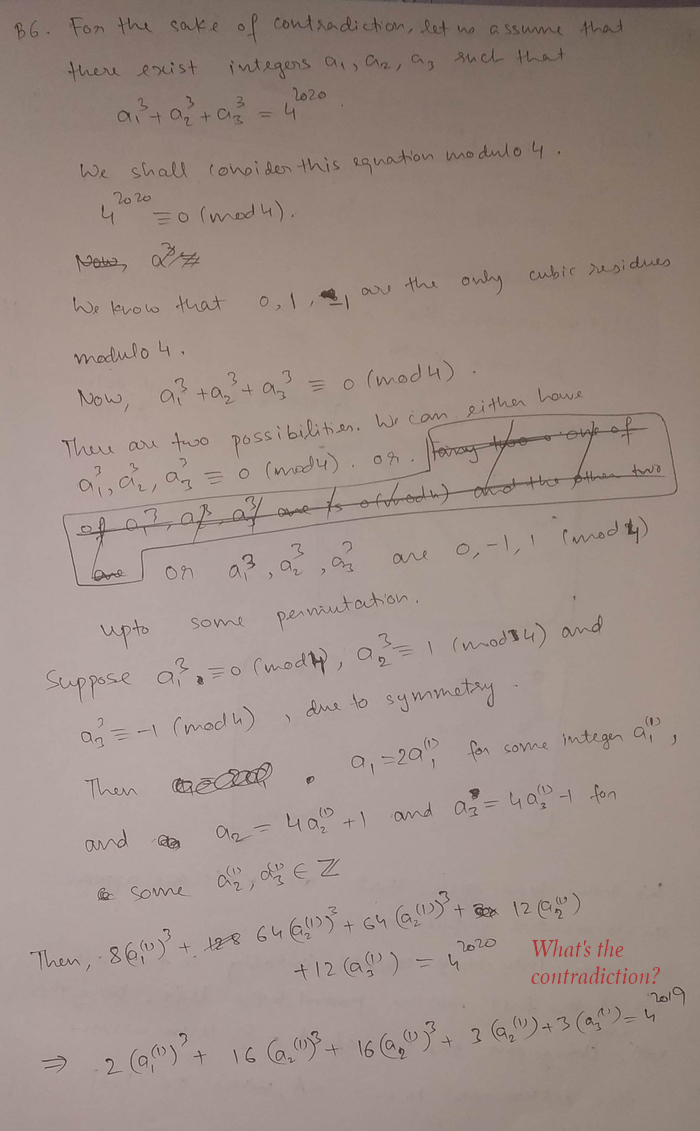 B6. For the sake of contradiction, let us assume that
there exist integers a₁, a₂, a₃ such that
a₁³ + a₂³ + a₃³ = 4²⁰²⁰.
We shall consider this equation modulo 4.
4²⁰²⁰ ≡ 0 (mod 4).
Now, a³ ≢
We know that 0, 1, -1 are the only cubic residues
modulo 4.
Now, a₁³ + a₂³ + a₃³ ≡ 0 (mod 4).
There are two possibilities. We can either have
a₁³, a₂³, a₃³ ≡ 0 (mod 4). or. two one of
of a₁³, a₂³, a₃³ are is 0 (mod 4) and the other two
are or a₁³, a₂³, a₃³ are 0, -1, 1 (mod 4)
upto some permutation.
Suppose a₁³ ≡ 0 (mod 4), a₂³ ≡ 1 (mod 4) and
a₃³ ≡ -1 (mod 4), due to symmetry.
Then a₁ = 2a₁⁽¹⁾ for some integer a₁⁽¹⁾,
and a₂ = 4a₂⁽¹⁾ + 1 and a₃ = 4a₃⁽¹⁾ - 1 for
some a₂⁽¹⁾, a₃⁽¹⁾ ∈ ℤ
Then, 8(a₁⁽¹⁾)³ + 128 64(a₂⁽¹⁾)³ + 64(a₂⁽¹⁾)³ + 12(a₂⁽¹⁾)
+ 12(a₃⁽¹⁾) = 4²⁰²⁰
What's the
contradiction?
⇒ 2(a₁⁽¹⁾)³ + 16(a₂⁽¹⁾)³ + 16(a₂⁽¹⁾)³ + 3(a₂⁽¹⁾) + 3(a₃⁽¹⁾) = 4²⁰¹⁹